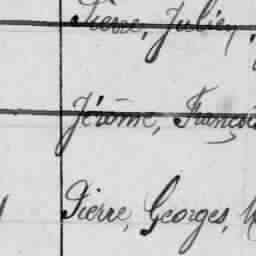 Pierre, Julien,
Jérôme, Franço
Pierre, Georges,